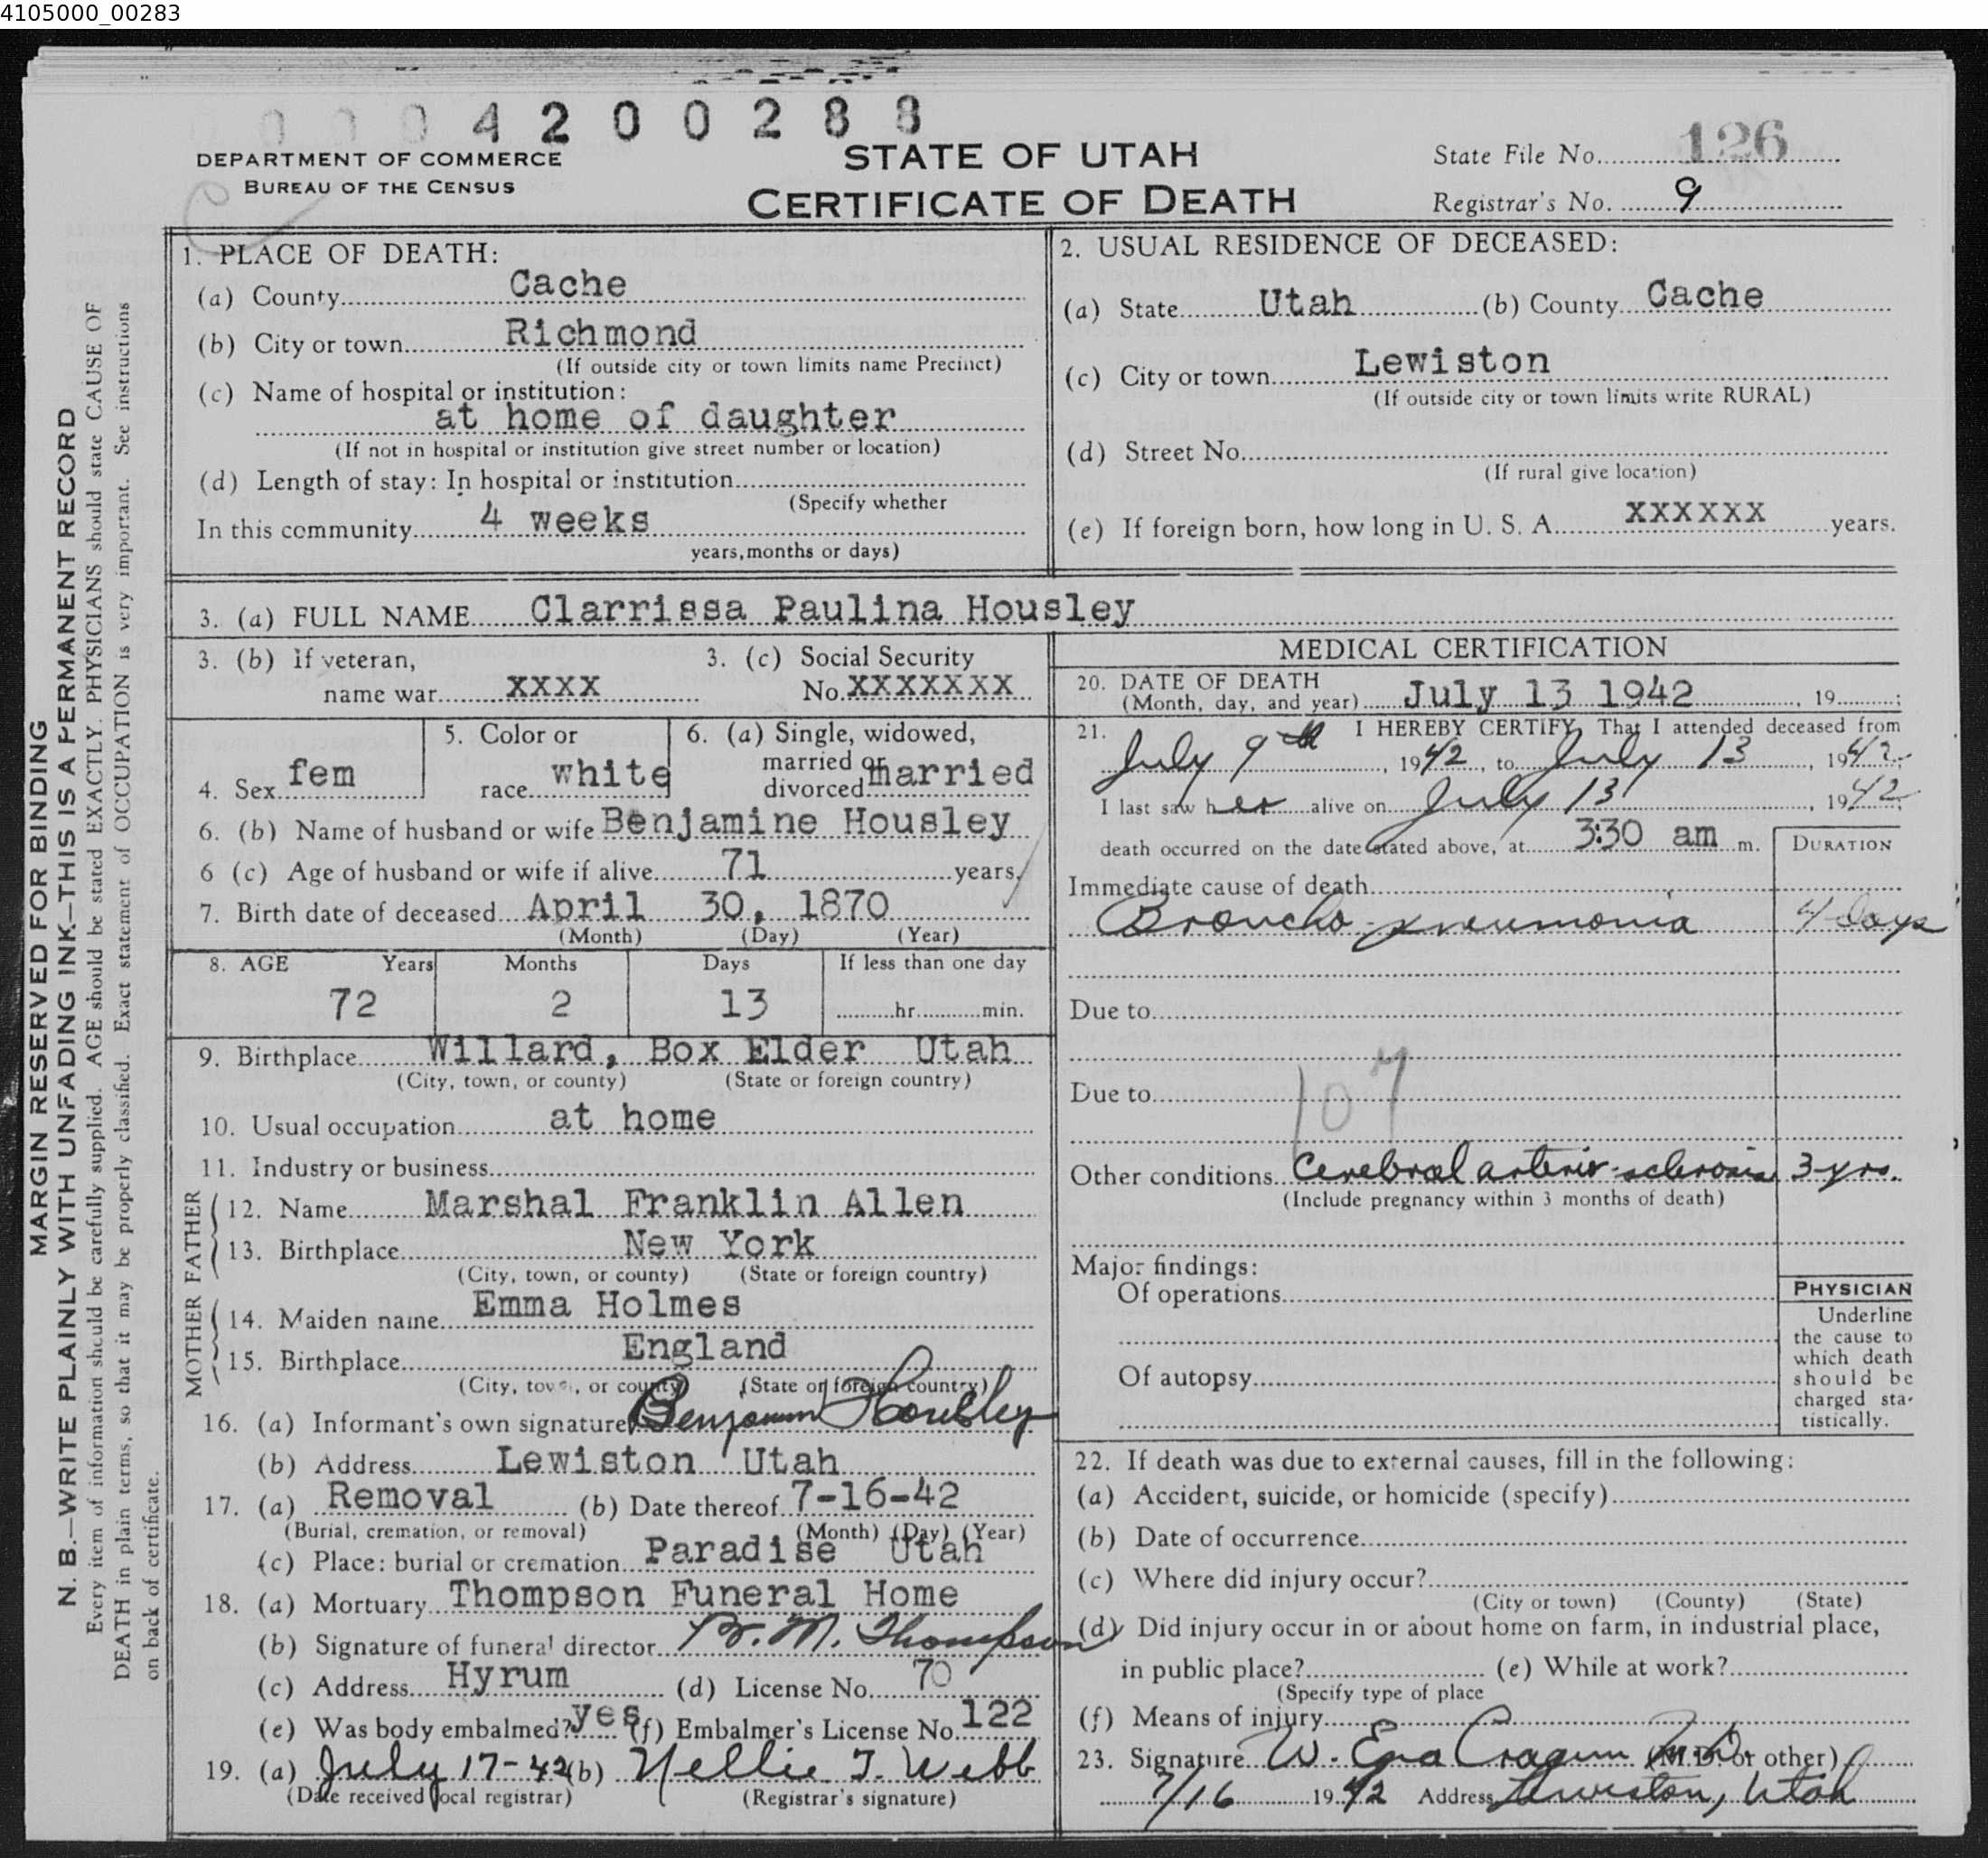 4105000_00283
0 0 0 0 4 2 0 0 2 8 8
DEPARTMENT OF COMMERCE
BUREAU OF THE CENSUS
STATE OF UTAH
CERTIFICATE OF DEATH
State File No. 126
Registrar's No. 9
MARGIN RESERVED FOR BINDING
N. B.—WRITE PLAINLY WITH UNFADING INK—THIS IS A PERMANENT RECORD
Every item of information should be carefully supplied. AGE should be stated EXACTLY. PHYSICIANS should state CAUSE OF
DEATH in plain terms, so that it may be properly classified. Exact statement of OCCUPATION is very important. See instructions
on back of certificate.
1. PLACE OF DEATH:
(a) County Cache
(b) City or town Richmond
(If outside city or town limits name Precinct)
(c) Name of hospital or institution:
at home of daughter
(If not in hospital or institution give street number or location)
(d) Length of stay: In hospital or institution
(Specify whether
In this community 4 weeks
years, months or days)
2. USUAL RESIDENCE OF DECEASED:
(a) State Utah (b) County Cache
(c) City or town Lewiston
(If outside city or town limits write RURAL)
(d) Street No.
(If rural give location)
(e) If foreign born, how long in U. S. A. XXXXXX years.
3. (a) FULL NAME Clarrissa Paulina Housley
3. (b) If veteran,
name war XXXX
3. (c) Social Security
No. XXXXXXX
4. Sex fem
5. Color or
race white
6. (a) Single, widowed,
married or
divorced married
6. (b) Name of husband or wife Benjamine Housley
6 (c) Age of husband or wife if alive 71 years,
7. Birth date of deceased April 30, 1870
(Month) (Day) (Year)
8. AGE Years Months Days If less than one day
72 2 13 hr. min.
9. Birthplace Willard, Box Elder Utah
(City, town, or county) (State or foreign country)
10. Usual occupation at home
11. Industry or business
FATHER
12. Name Marshal Franklin Allen
13. Birthplace New York
(City, town, or county) (State or foreign country)
MOTHER
14. Maiden name Emma Holmes
15. Birthplace England
(City, town, or county) (State or foreign country)
16. (a) Informant's own signature Benjamin Housley
(b) Address Lewiston Utah
17. (a) Removal (b) Date thereof 7-16-42
(Burial, cremation, or removal) (Month) (Day) (Year)
(c) Place: burial or cremation Paradise Utah
18. (a) Mortuary Thompson Funeral Home
(b) Signature of funeral director W. M. Thompson
(c) Address Hyrum (d) License No. 70
(e) Was body embalmed? yes (f) Embalmer's License No. 122
19. (a) July 17-42 (b) Nellie T. Webb
(Date received local registrar) (Registrar's signature)
MEDICAL CERTIFICATION
20. DATE OF DEATH
(Month, day, and year) July 13 1942, 19 ;
21. I HEREBY CERTIFY, That I attended deceased from
July 9th, 1942, to July 13, 1942;
I last saw her alive on July 13, 1942;
death occurred on the date stated above, at 3:30 am m.
DURATION
Immediate cause of death
Broncho-pneumonia 4 days
Due to
Due to
107
Other conditions Cerebral arterio-sclerosis 3 yrs.
(Include pregnancy within 3 months of death)
Major findings:
Of operations
Of autopsy
PHYSICIAN
Underline
the cause to
which death
should be
charged sta-
tistically.
22. If death was due to external causes, fill in the following:
(a) Accident, suicide, or homicide (specify)
(b) Date of occurrence
(c) Where did injury occur?
(City or town) (County) (State)
(d) Did injury occur in or about home on farm, in industrial place,
in public place? (e) While at work?
(Specify type of place
(f) Means of injury
23. Signature W. Ezra Cragun M.D. (M.D. or other)
7/16 1942 Address Lewiston, Utah